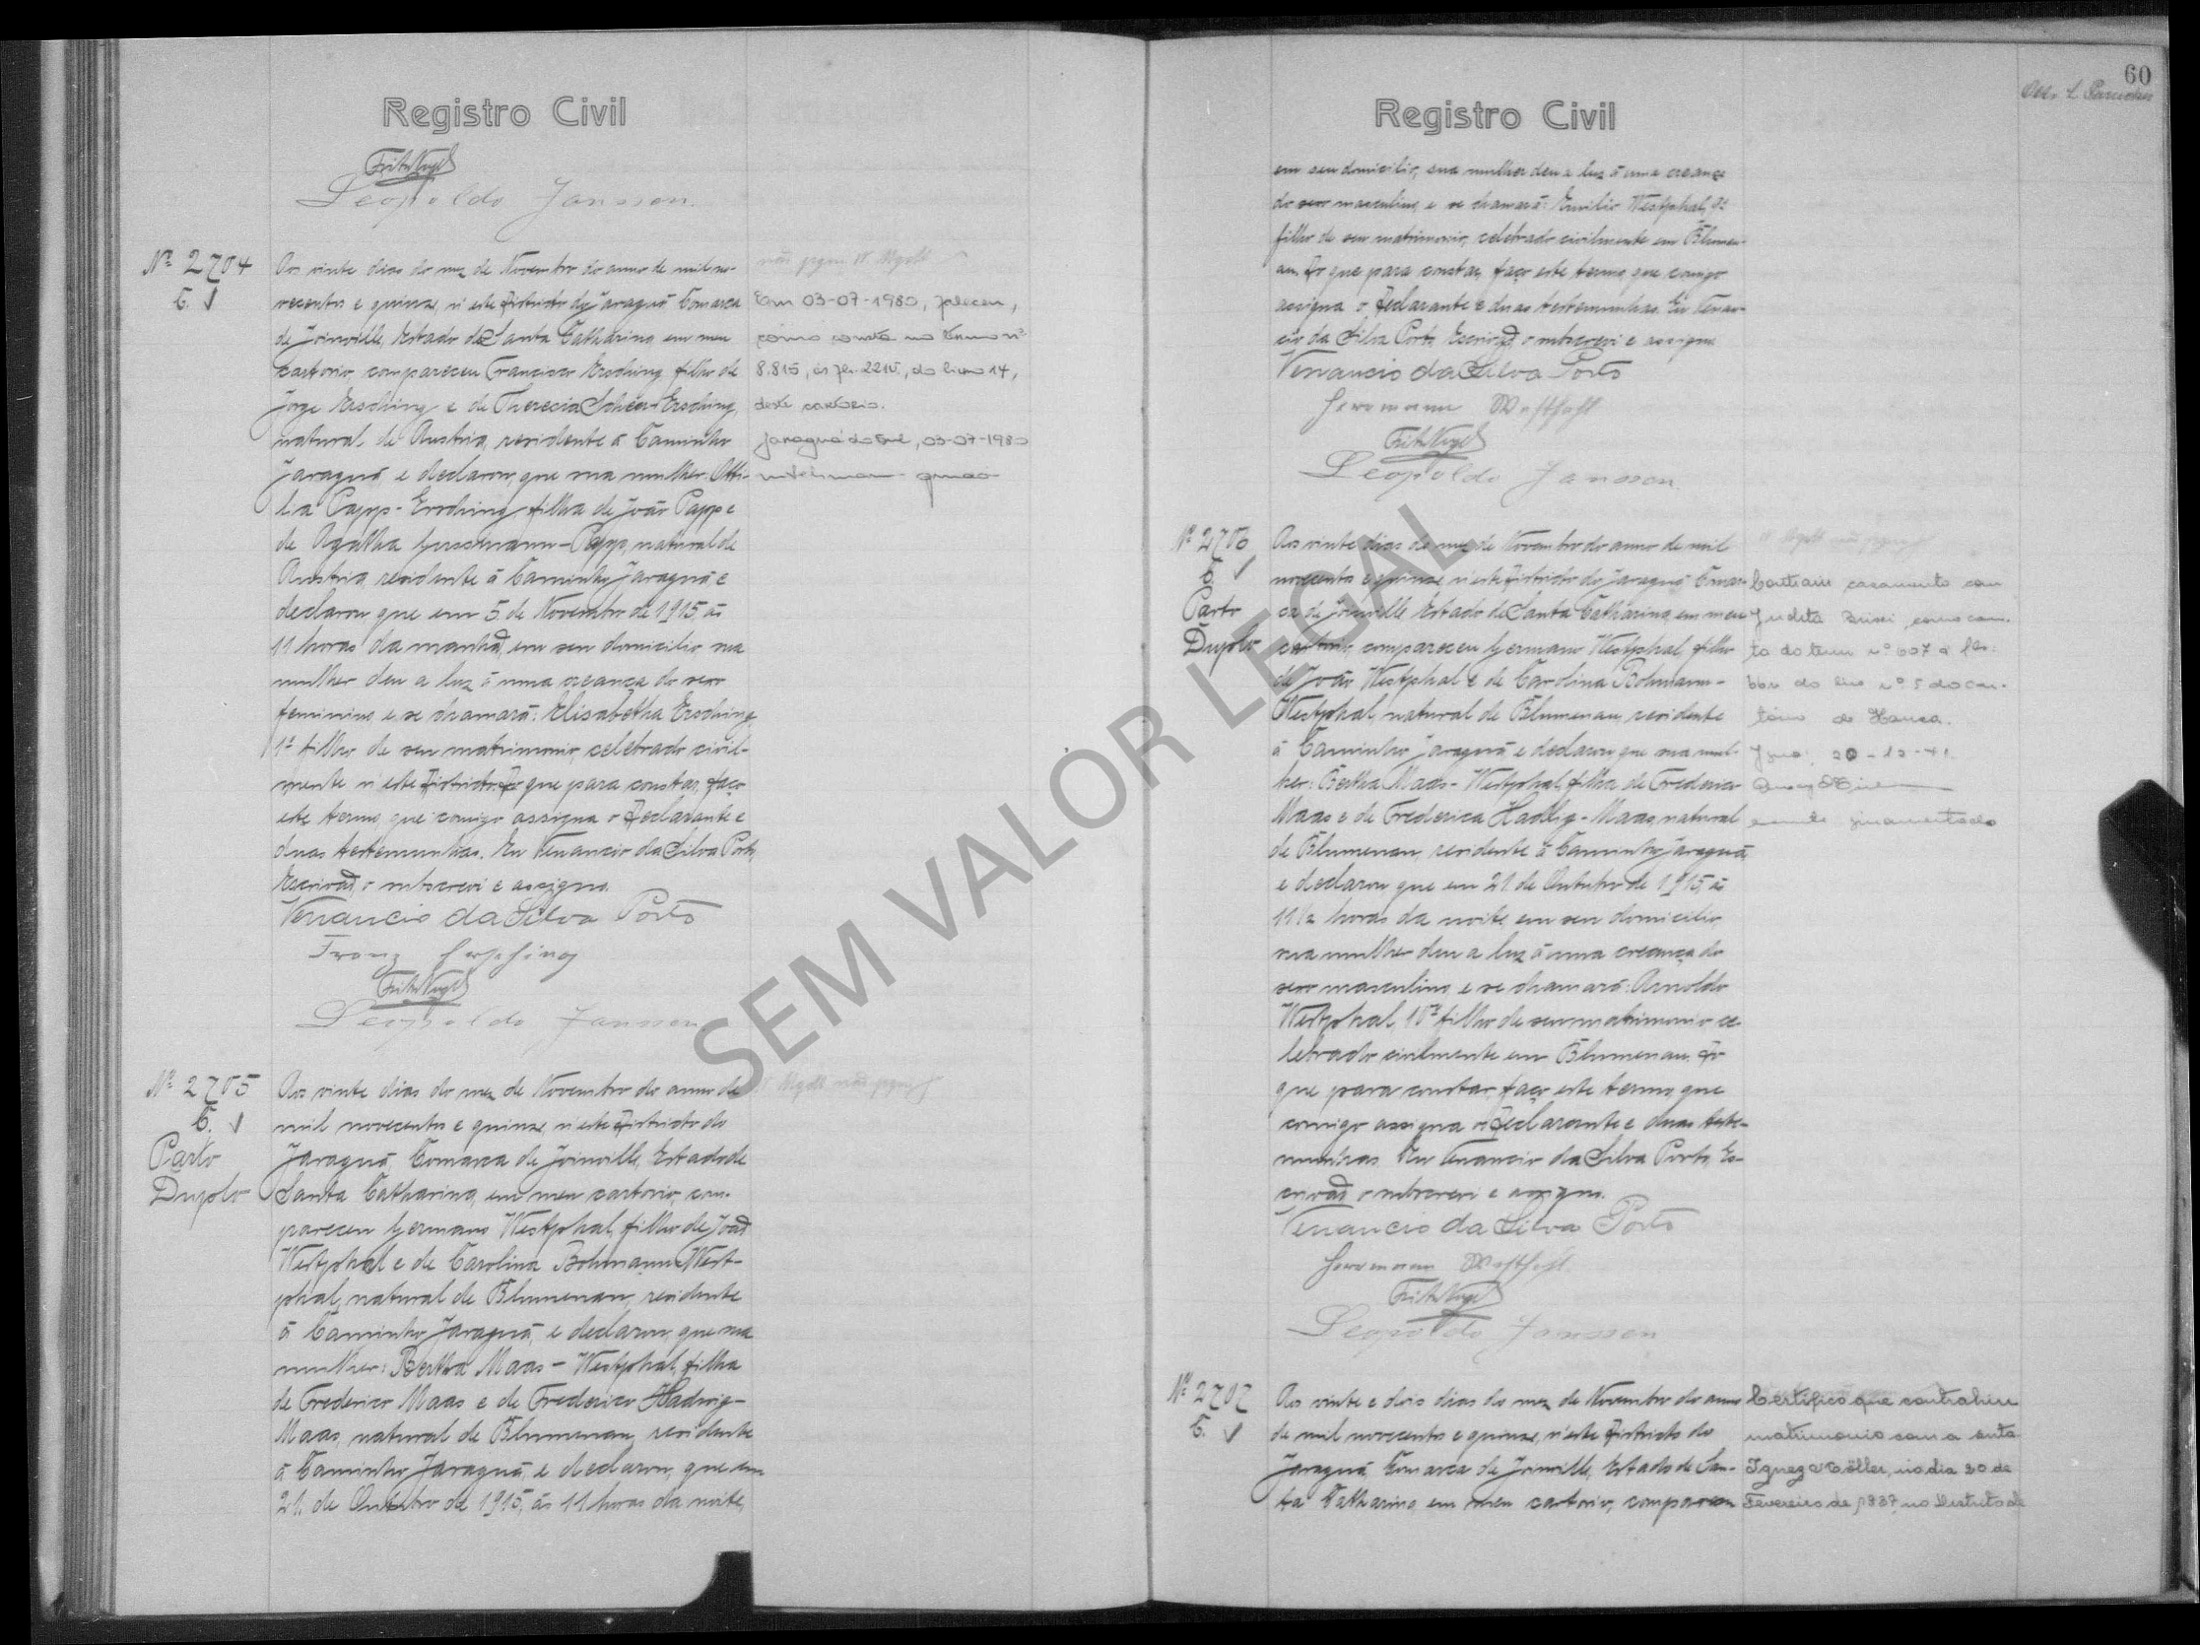 Registro Civil
Fritz Vogel
Leopoldo Janssen.
Nº 2704
Aos vinte dias do mez de Novembro do anno de mil no-
vecentos e quinze, n'este Districto de Jaraguá Comarca
de Joinville, Estado de Santa Catharina, em meu
cartorio, compareceu Francisco Ersching, filho de
Jorge Ersching e de Therecia Ersching,
natural de Austria, residente á Caminho
Jaraguá e declarou, que sua mulher Otti-
lia Papp-Ersching, filha de João Papp e
de Agatha Papp, natural de
Austria, residente á Caminho Jaraguá e
declarou que em 5 de Novembro de 1915, ás
11 horas da manhã, em seu domicilio, sua
mulher deu a luz á uma creança do sexo
feminino e se chamará: Elisabetha Ersching
1º filho de seu matrimonio, celebrado civil-
mente n'este Districto. Do que para constar, faço
este termo, que comigo assigna o Declarante e
duas testemunhas. Eu Venancio da Silva Porto,
Escrivaõ, o subscrevi e assigno.
Venancio da Silva Porto
Franz Ersching
Fritz Vogel
Leopoldo Janssen
Em 03-07-1980, faleceu,
como consta no termo nº
8.815, ás fls. 221v., do livro 14,
deste cartorio.
Jaraguá do Sul, 03-07-1980
Nº 2705
Parto
Duplo
Aos vinte dias do mez de Novembro do anno de
mil novecentos e quinze, n'este Districto do
Jaraguá, Comarca de Joinville, Estado de
Santa Catharina, em meu cartorio, com-
pareceu Germano Westphal, filho de Joaõ
Westphal e de Carolina Bohmann-West-
phal, natural de Blumenau, residente
á Caminho Jaraguá, e declarou, que sua
mulher: Bertha Maas-Westphal, filha
de Frederico Maas e de Frederica Hadwig-
Maas, natural de Blumenau, residente
á Caminho Jaraguá, e declarou, que em
21 de Outubro de 1915, ás 11 horas da noite,
60
Registro Civil
em seu domicilio, sua mulher deu a luz á uma creança
do sexo masculino, e se chamará: Emilio Westphal, 9º
filho de seu matrimonio, celebrado civilmente em Blumen-
au. Do que para constar, faço este termo, que comigo
assigna o Declarante e duas testemunhas. Eu Venan-
cio da Silva Porto, Escrivaõ, o subscrevi e assigno
Venancio da Silva Porto
Herrmann Westphal
Fritz Vogel
Leopoldo Janssen.
Nº 2706
Parto
Duplo
Aos vinte dias do mez de Novembro do anno de mil
novecentos e quinze, n'este Districto do Jaraguá, Comar-
ca de Joinville, Estado de Santa Catharina, em meu
cartorio, compareceu Germano Westphal, filho
de João Westphal e de Carolina Bohmann-
Westphal, natural de Blumenau, residente
á Caminho Jaraguá e declarou que sua mul-
her: Bertha Maas-Westphal, filha de Frederico
Maas e de Frederica Hadwig-Maas, natural
de Blumenau, residente á Caminho Jaraguá,
e declarou que em 21 de Outubro de 1915, ás
11 1/2 horas da noite, em seu domicilio,
sua mulher deu a luz á uma creança do
sexo masculino e se chamará: Arnoldo
Westphal, 10º filho de seu matrimonio ce-
lebrado civilmente em Blumenau. Do
que para constar, faço este termo, que
comigo assigna o Declarante e duas teste-
munhas. Eu Venancio da Silva Porto, Es-
crivaõ, o subscrevi e assigno.
Venancio da Silva Porto
Herrmann Westphal
Fritz Vogel
Leopoldo Janssen
Contraiu casamento com
Judita, como cons-
ta do termo nº 607 á fls.
do livro nº 5 do car-
tório de Hansa.
20-12-41
juramentado
Nº 2707
Aos vinte e dois dias do mez de Novembro do anno
de mil novecentos e quinze, n'este Districto do
Jaraguá, Comarca de Joinville, Estado de San-
ta Catharina, em meu cartorio, compareceu
Certifico que contrahiu
matrimonio com a snta
Ignez, no dia 20 de
Fevereiro de 1937, no Distrito de
SEM VALOR LEGAL